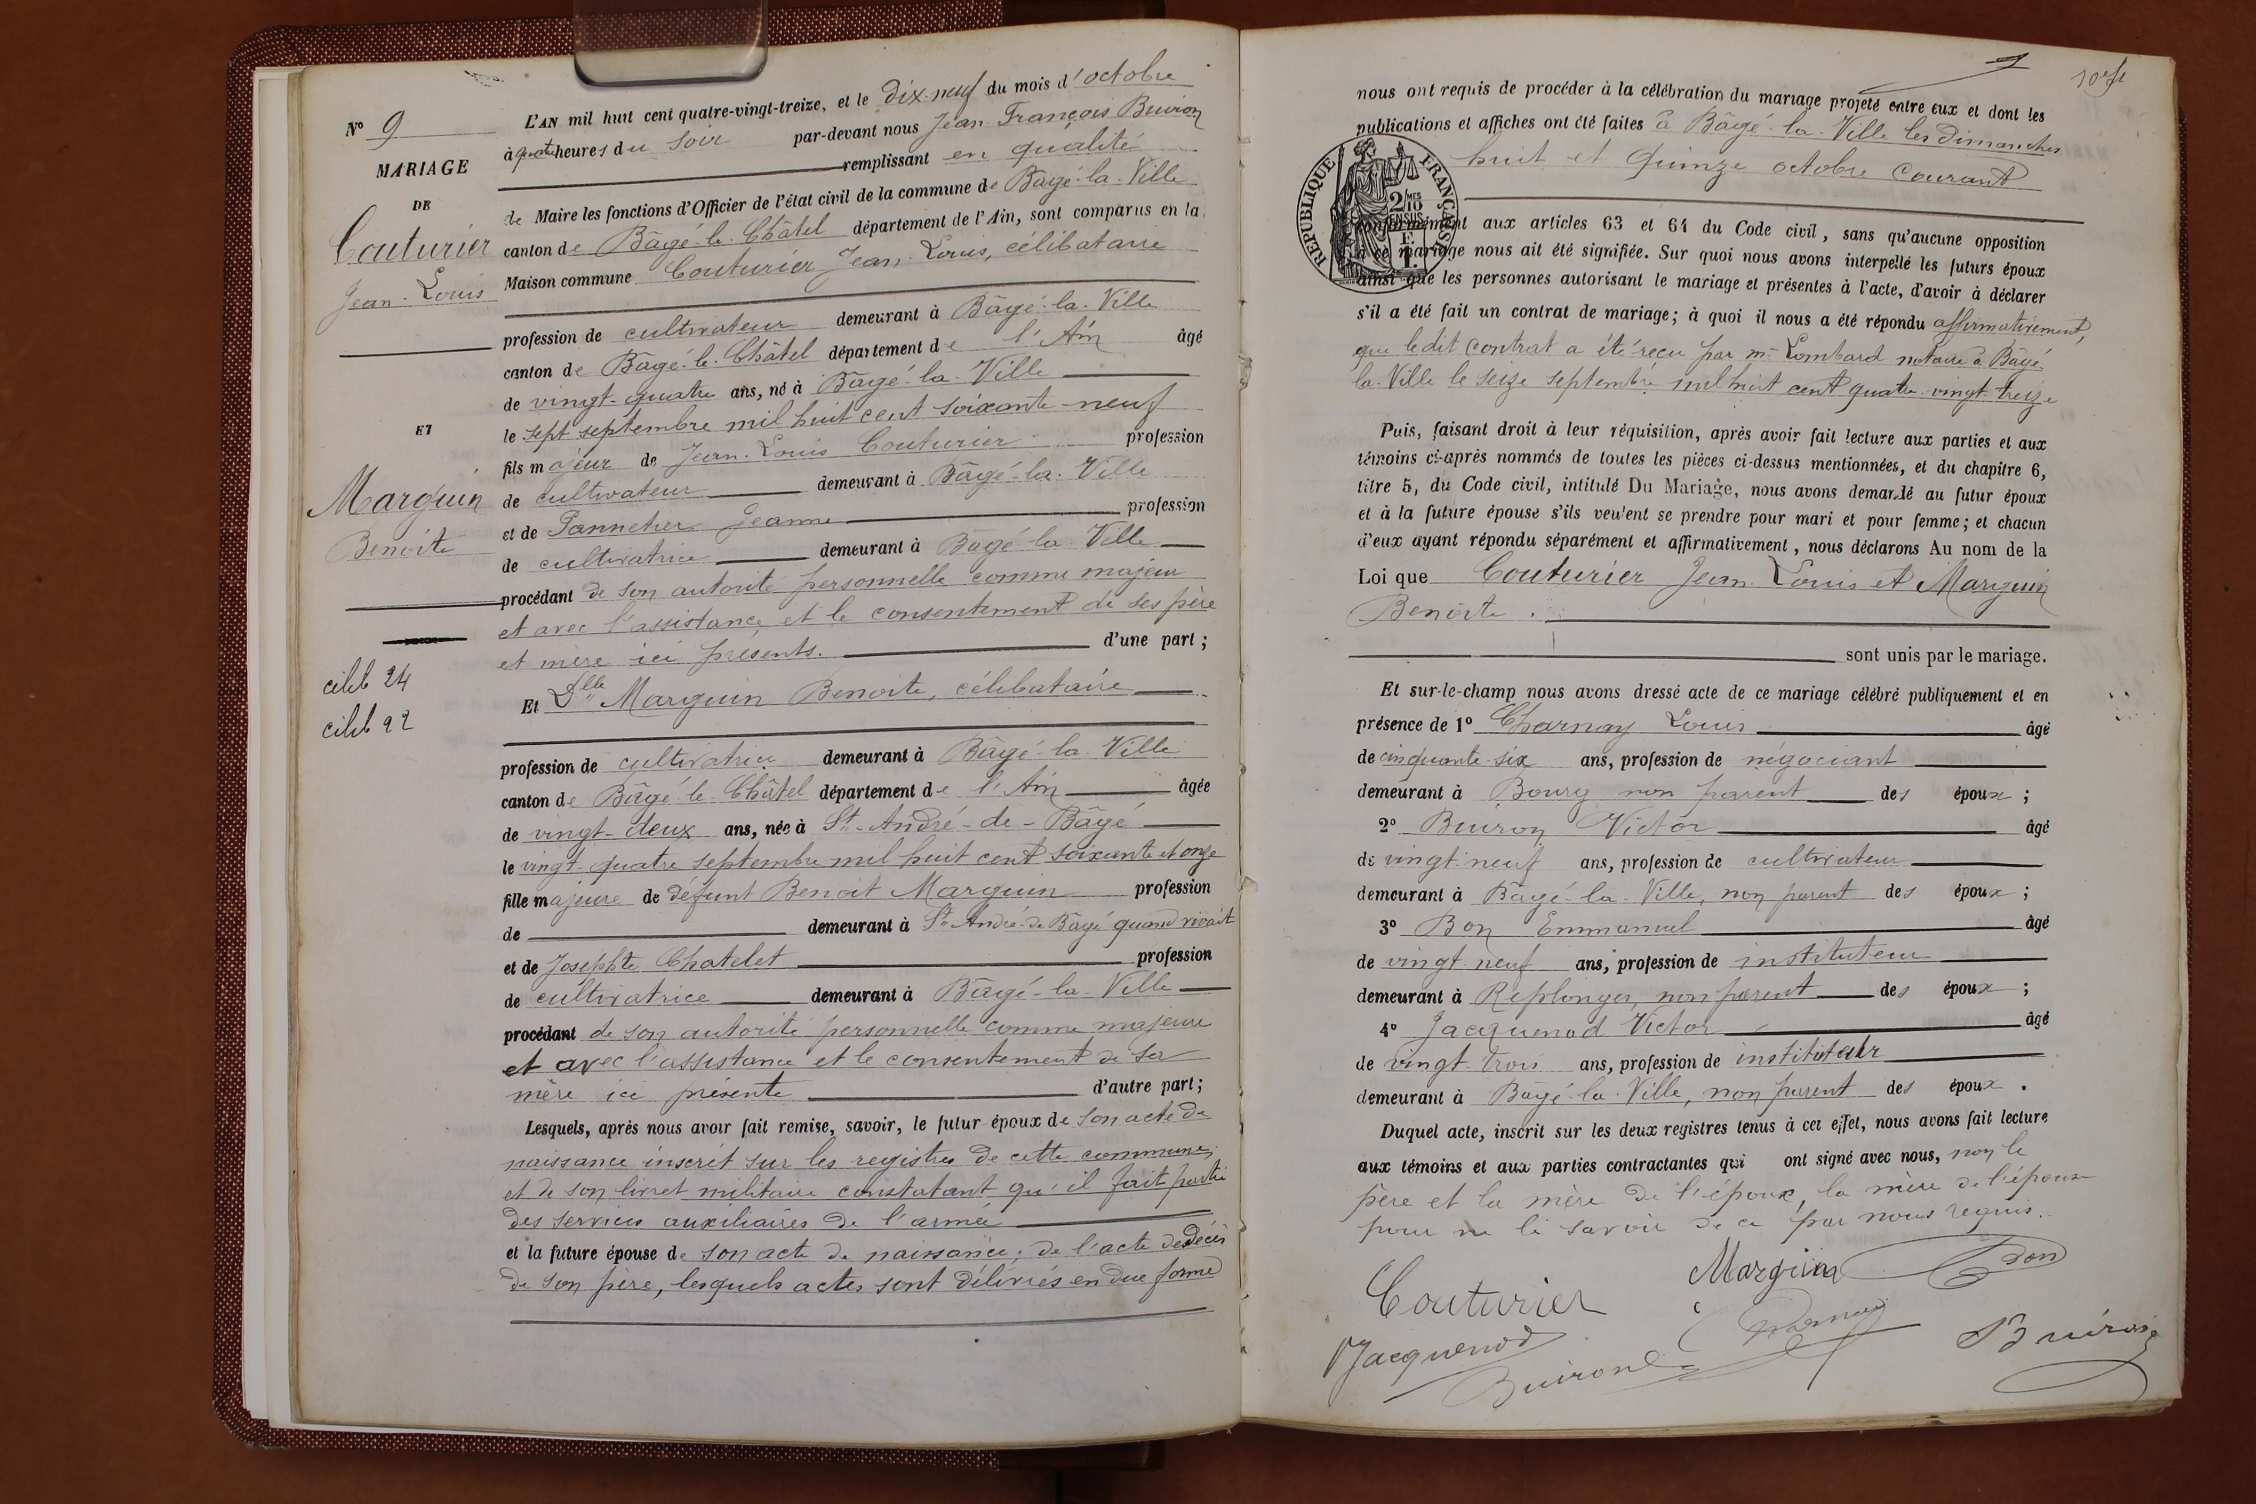 N° 9
MARIAGE
DE
Couturier
Jean-Louis
ET
Marguin
Benoite
célib 24
célib 22
L'AN mil huit cent quatre-vingt-treize, et le dix-neuf du mois d'octobre
à quatre heures du soir par-devant nous Jean-François Buiron
remplissant en qualité
de Maire les fonctions d'Officier de l'état civil de la commune de Bâgé-la-Ville
canton de Bâgé-le-Châtel département de l'Ain, sont comparus en la
Maison commune Couturier Jean-Louis, célibataire
profession de cultivateur demeurant à Bâgé-la-Ville
canton de Bâgé-le-Châtel département de l'Ain âgé
de vingt-quatre ans, né à Bâgé-la-Ville
le sept septembre mil huit cent soixante-neuf
fils majeur de Jean-Louis Couturier profession
de cultivateur demeurant à Bâgé-la-Ville
et de Jeanne profession
de cultivatrice demeurant à Bagé-la-Ville
procédant de son autorité personnelle comme majeur
et avec l'assistance et le consentement de ses père
et mère ici présents. d'une part ;
Et Dlle Marguin Benoite, célibataire
profession de cultivatrice demeurant à Bâgé-la-Ville
canton de Bâgé-le-Châtel département de l'Ain âgée
de vingt-deux ans, née à St-André-de-Bâgé
le vingt-quatre septembre mil huit cent soixante et onze
fille majeure de défunt Benoit Marguin profession
de demeurant à St-André-de-Bâgé quand vivait
et de Josephte Chatelet profession
de cultivatrice demeurant à Bâgé-la-Ville
procédant de son autorité personnelle comme majeure
et avec l'assistance et le consentement de sa
mère ici présente d'autre part ;
Lesquels, après nous avoir fait remise, savoir, le futur époux de son acte de
naissance inscrit sur les registres de cette commune,
et de son livret militaire constatant qu'il fait partie
des services auxiliaires de l'armée
et la future épouse de son acte de naissance ; de l'acte de décès
de son père, lesquels actes sont délivrés en due forme
nous ont requis de procéder à la célébration du mariage projeté entre eux et dont les
publications et affiches ont été faites à Bâgé-la-Ville les dimanches
huit et quinze octobre courant
RÉPUBLIQUE FRANÇAISE
2/10 MES
EN SUS
F.
1.
conformément aux articles 63 et 64 du Code civil, sans qu'aucune opposition
à ce mariage nous ait été signifiée. Sur quoi nous avons interpellé les futurs époux
ainsi que les personnes autorisant le mariage et présentes à l'acte, d'avoir à déclarer
s'il a été fait un contrat de mariage ; à quoi il nous a été répondu affirmativement,
que ledit contrat a été reçu par me Lombard notaire à Bâgé-
la-Ville le seize septembre mil huit cent quatre-vingt-treize
Puis, faisant droit à leur réquisition, après avoir fait lecture aux parties et aux
témoins ci-après nommés de toutes les pièces ci-dessus mentionnées, et du chapitre 6,
titre 5, du Code civil, intitulé Du Mariage, nous avons demandé au futur époux
et à la future épouse s'ils veulent se prendre pour mari et pour femme ; et chacun
d'eux ayant répondu séparément et affirmativement, nous déclarons Au nom de la
Loi que Couturier Jean-Louis et Marguin
Benoite.
sont unis par le mariage.
Et sur-le-champ nous avons dressé acte de ce mariage célébré publiquement et en
présence de 1° Charnay Louis âgé
de cinquante-six ans, profession de négociant
demeurant à Bourg non parent des époux ;
2° Buiron Victor âgé
de vingt-neuf ans, profession de cultivateur
demeurant à Bâgé-la-Ville, non parent des époux ;
3° Bon Emmanuel âgé
de vingt-neuf ans, profession de instituteur
demeurant à Replonges, non parent des époux ;
4° Jacquenod Victor âgé
de vingt-trois ans, profession de instituteur
demeurant à Bâgé-la-Ville, non parent des époux.
Duquel acte, inscrit sur les deux registres tenus à cet effet, nous avons fait lecture
aux témoins et aux parties contractantes qui ont signé avec nous, non le
père et la mère de l'époux, la mère de l'épouse
pour ne le savoir de ce par nous requis.
Couturier Marguin Bon
Jacquenod Buiron Charnay Buiron